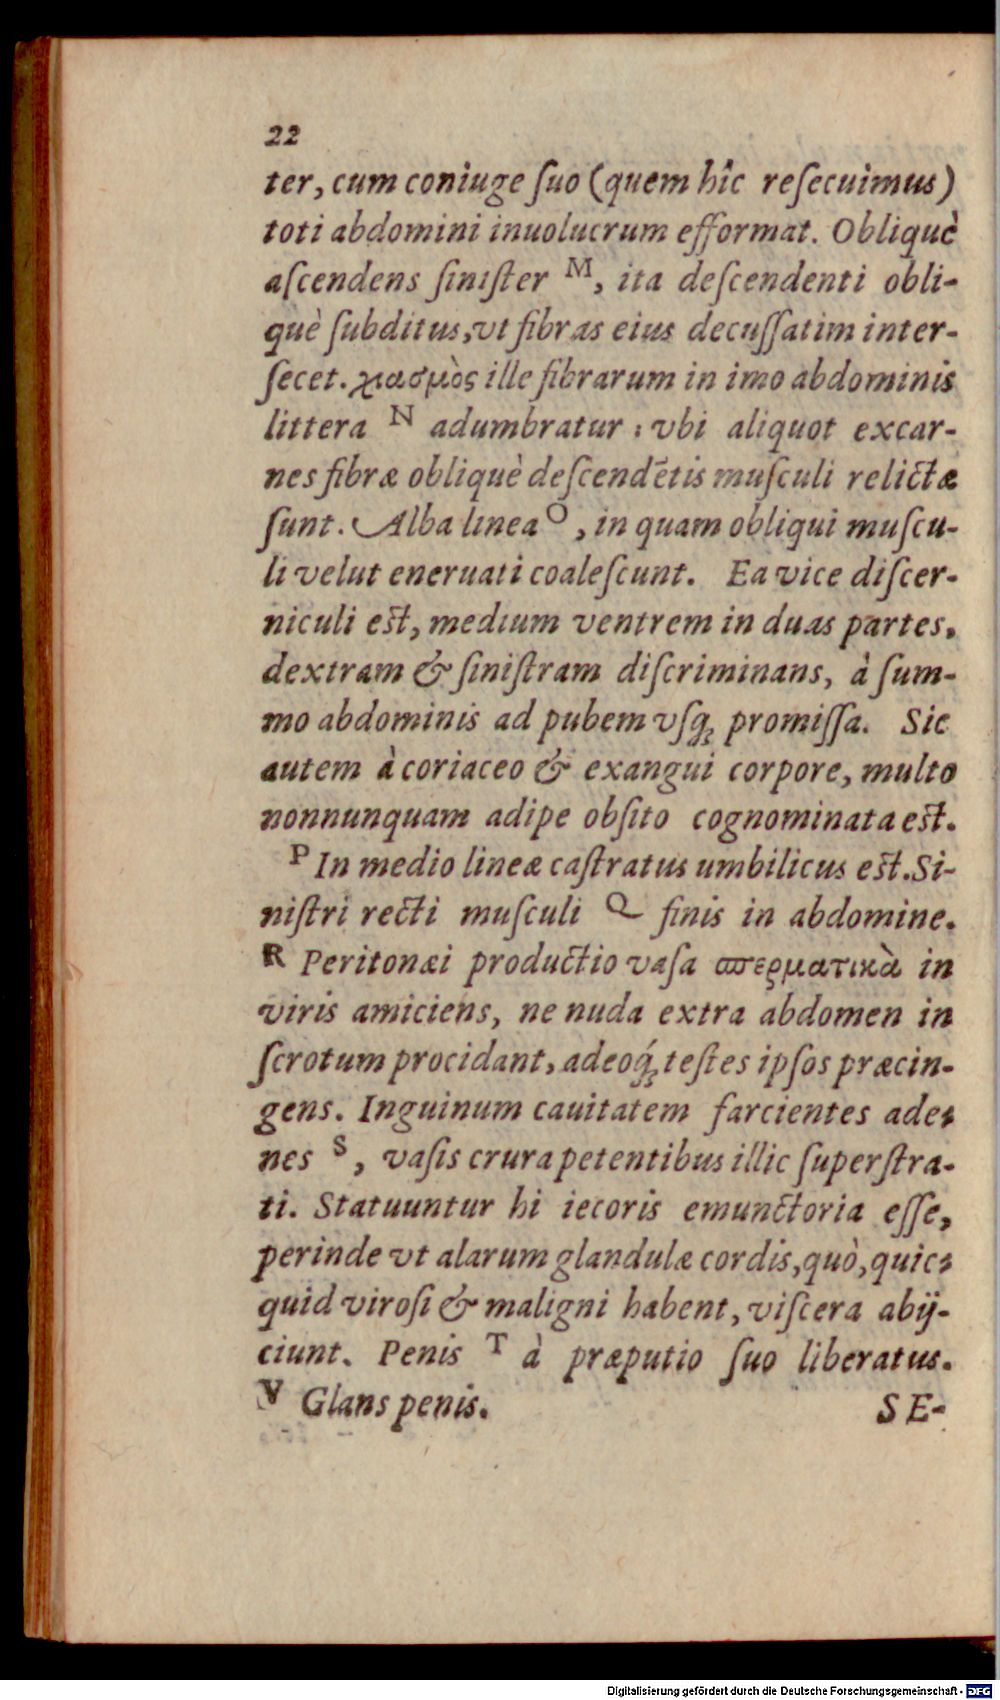 22
ter, cum coniuge ſuo (quem hîc reſecuimus)
toti abdomini inuolucrum efformat. Obliquè
aſcendens ſiniſter M, ita deſcendenti obli-
què ſubditus, vt fibras eius decuſſatim inter-
ſecet. χιασμὸς ille fibrarum in imo abdominis
littera N adumbratur: vbi aliquot excar-
nes fibræ obliquè deſcendẽtis muſculi relictæ
ſunt. Alba linea O, in quam obliqui muſcu-
li velut eneruati coaleſcunt. Ea vice diſcer-
niculi est, medium ventrem in duas partes,
dextram & ſiniſtram diſcriminans, à ſum-
mo abdominis ad pubem vſq; promiſſa. Sic
autem à coriaceo & exangui corpore, multo
nonnunquam adipe obſito cognominata est.
P In medio lineæ caſtratus umbilicus est. Si-
niſtri recti muſculi Q finis in abdomine.
R Peritonæi productio vaſa σπερματικὰ in
viris amiciens, ne nuda extra abdomen in
ſcrotum procidant, adeoq́; teſtes ipſos præcin-
gens. Inguinum cauitatem farcientes ade-
nes S, vaſis crura petentibus illic ſuperſtra-
ti. Statuuntur hi iecoris emunctoria eſſe,
perinde vt alarum glandulæ cordis, quò, quic-
quid viroſi & maligni habent, viſcera abij-
ciunt. Penis T à præputio ſuo liberatus.
V Glans penis. SE-
Digitalisierung gefördert durch die Deutsche Forschungsgemeinschaft - DFG